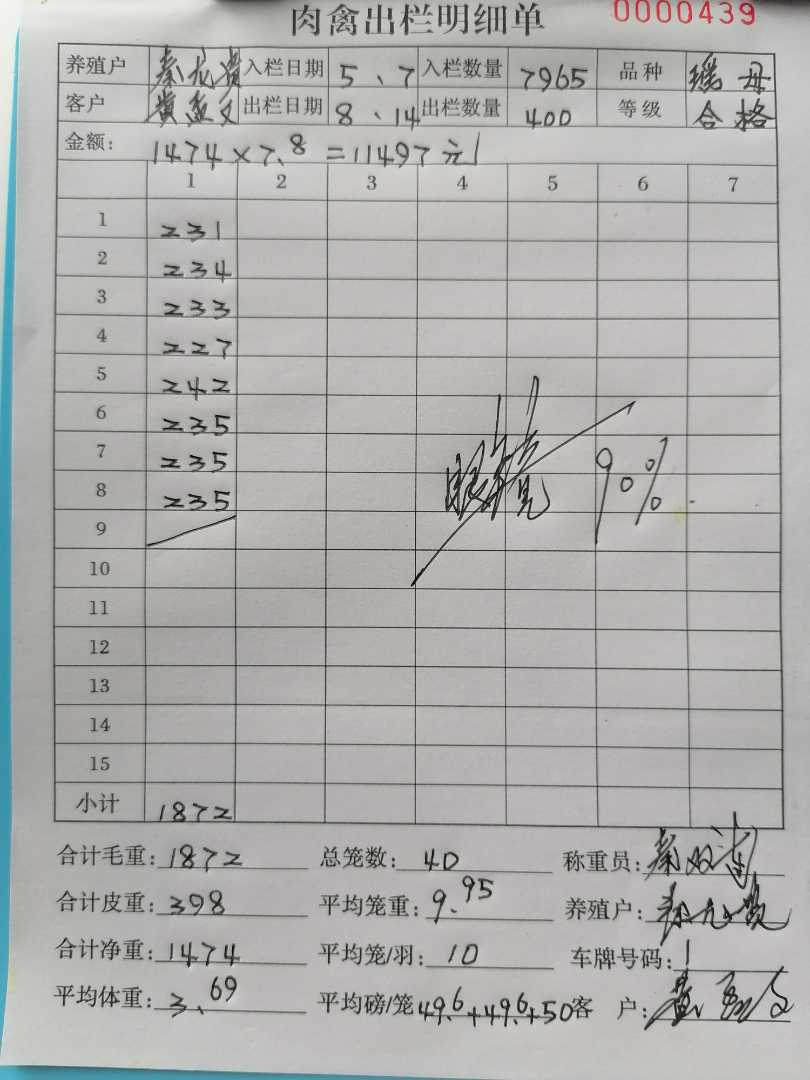 肉禽出栏明细单 0000439
养殖户 秦龙贵 入栏日期 5、7 入栏数量 7965 品种 瑶母
客户 出栏日期 8、14 出栏数量 400 等级 合格
金额: 1474×7.8=11497元
1 2 3 4 5 6 7
1 231
2 234
3 233
4 227
5 242
6 235
7 235
8 235
9
10
11
12
13
14
15
90%
小计 1872
合计毛重: 1872 总笼数: 40 称重员:
合计皮重: 398 平均笼重: 9.95 养殖户:
合计净重: 1474 平均笼/羽: 10 车牌号码:
平均体重: 3.69 平均磅/笼 49.6+49.6+50 客 户: